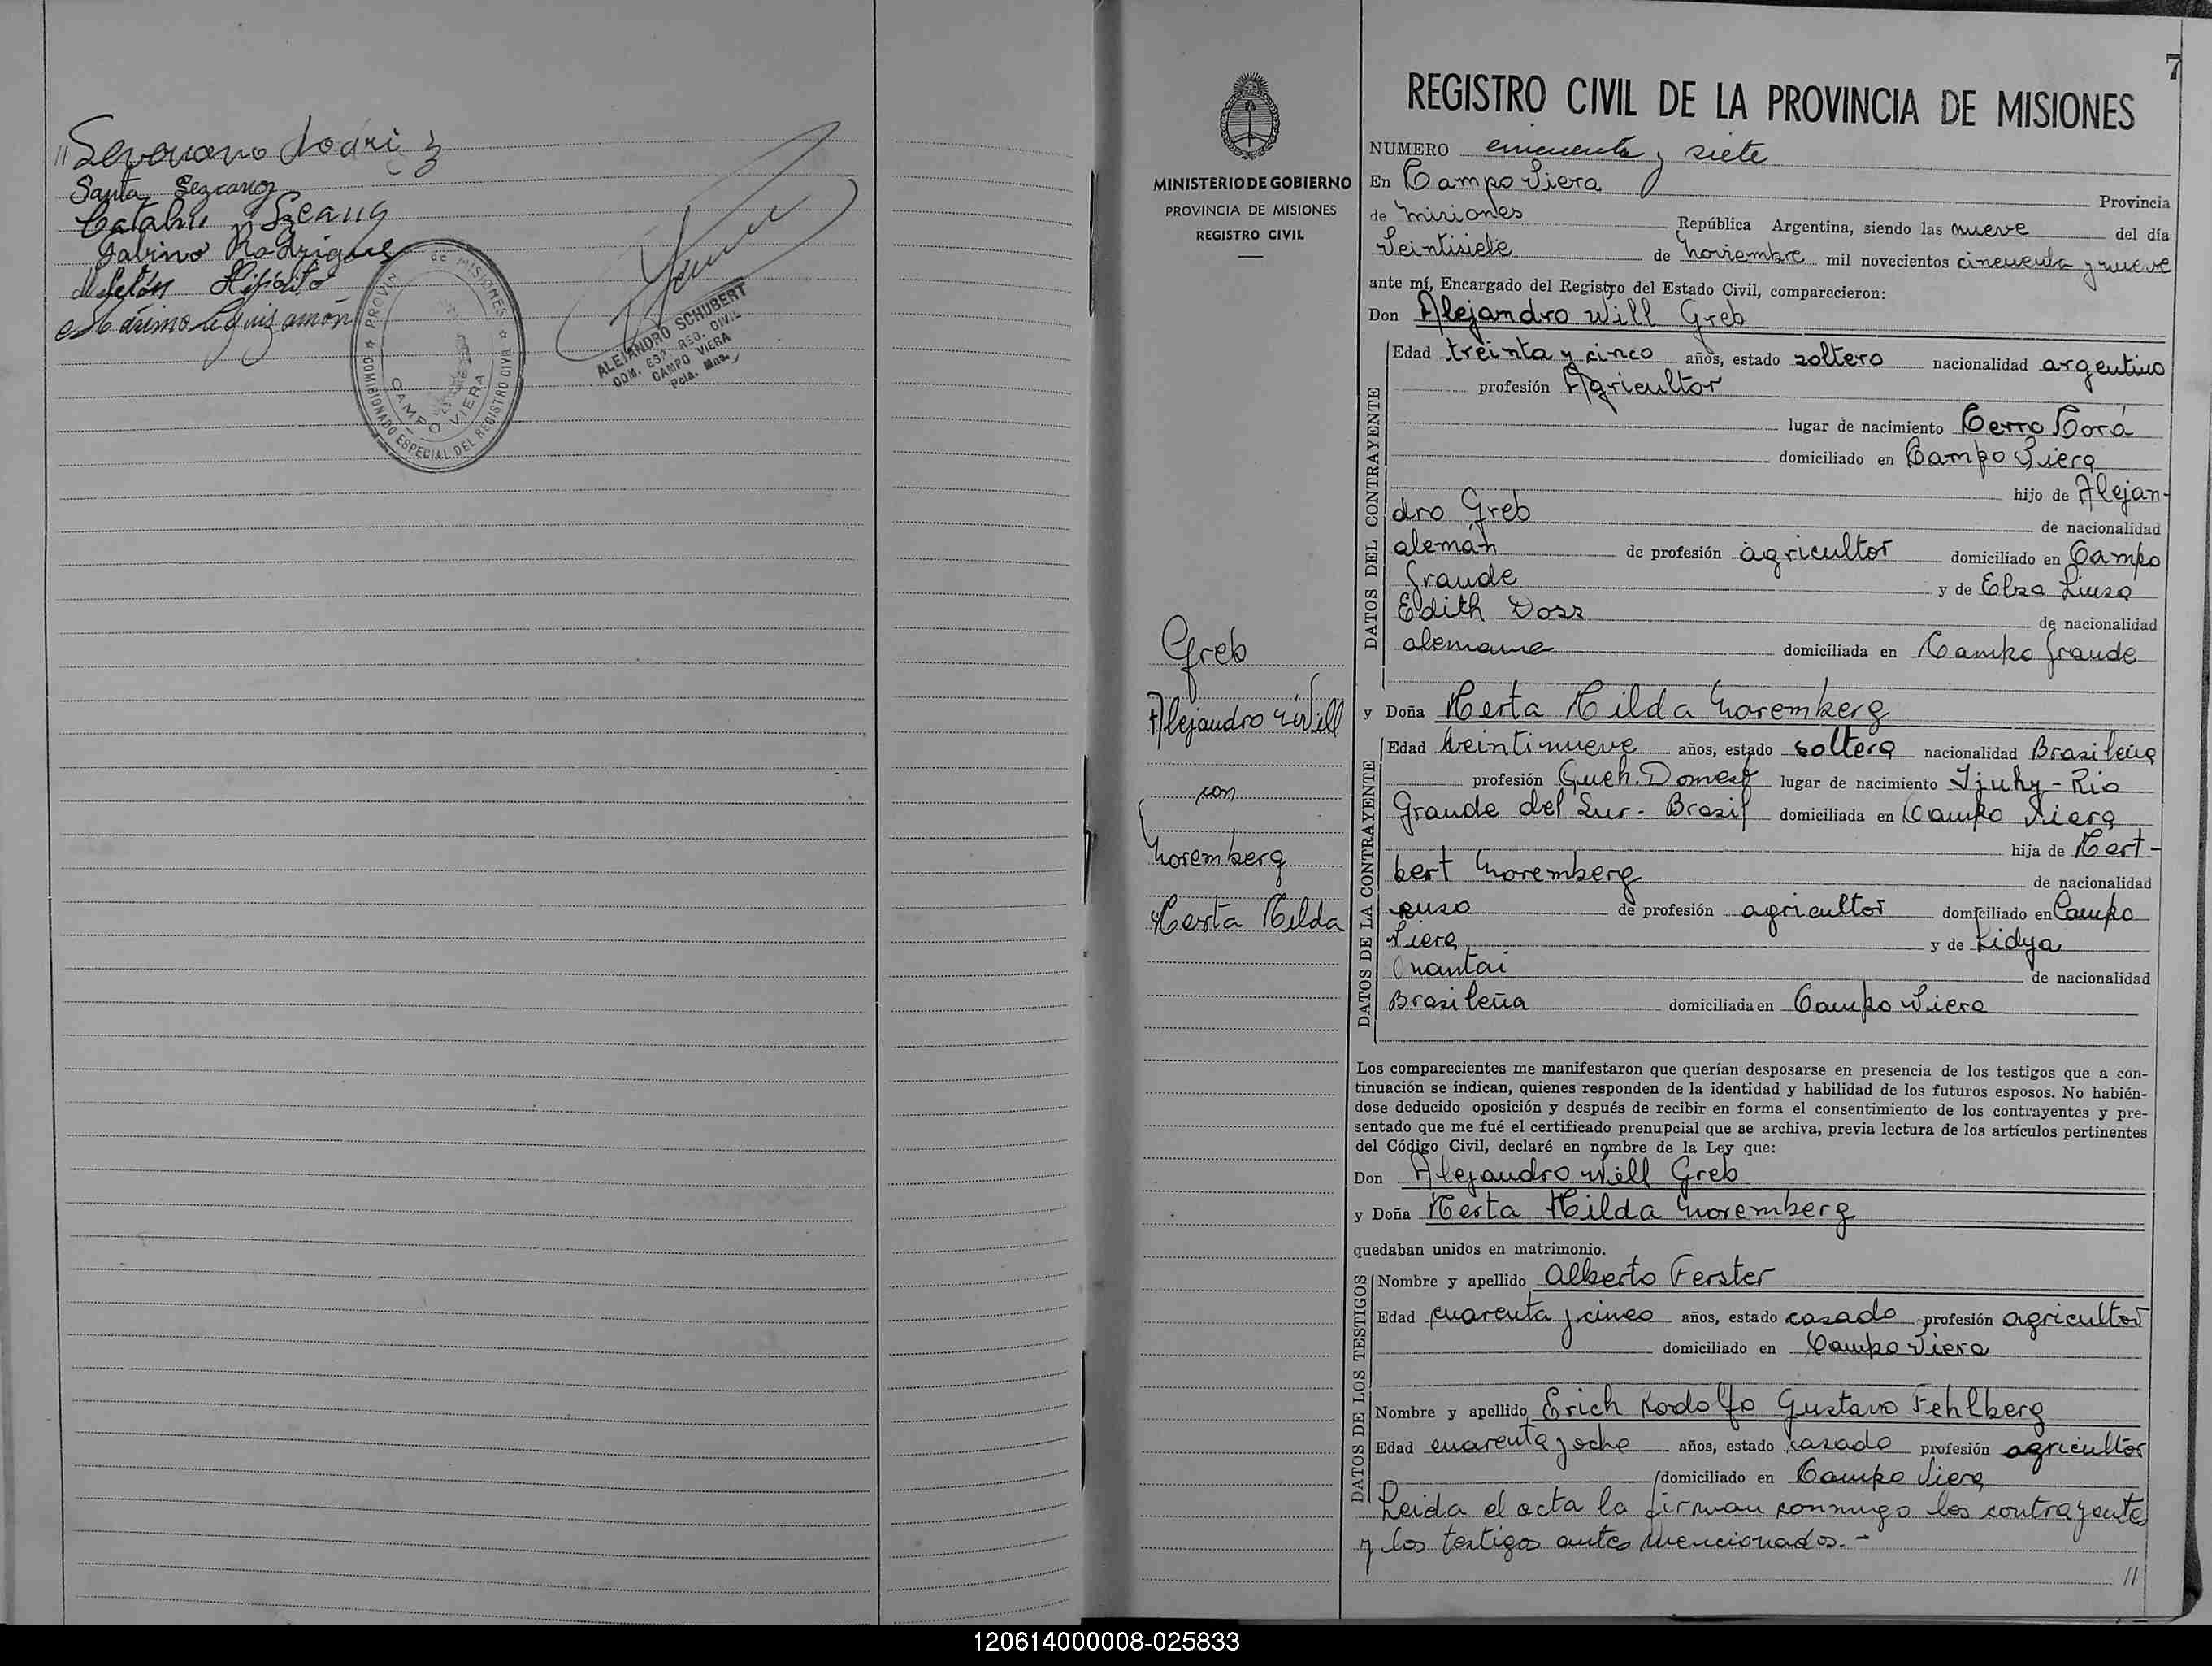 // Severiano
Santa
Catalin
Sabino Rodriguez
Hipólito
Leguizamón
PROVIN. de MISIONES
COMISIONADO ESPECIAL DEL REGISTRO CIVIL
CAMPO VIERA
ALEJANDRO SCHUBERT
COM. ESP. REG. CIVIL
CAMPO VIERA
Pcia. Mnes.
7
MINISTERIO DE GOBIERNO
PROVINCIA DE MISIONES
REGISTRO CIVIL
Greb
Alejandro Will
con
Noremberg
Herta Hilda
REGISTRO CIVIL DE LA PROVINCIA DE MISIONES
NUMERO cincuenta y siete
En Campo Viera Provincia
de Misiones República Argentina, siendo las nueve del día
Veintisiete de Noviembre mil novecientos cincuenta y nueve
ante mí, Encargado del Registro del Estado Civil, comparecieron:
Don Alejandro Will Greb
DATOS DEL CONTRAYENTE
Edad treinta y cinco años, estado soltero nacionalidad argentino
profesión Agricultor
lugar de nacimiento Cerro Corá
domiciliado en Campo Viera
hijo de Alejan-
dro Greb de nacionalidad
alemán de profesión agricultor domiciliado en Campo
Grande y de Elsa Luisa
Edith Doss de nacionalidad
alemana domiciliada en Campo Grande
y Doña Herta Hilda Noremberg
DATOS DE LA CONTRAYENTE
Edad veintinueve años, estado soltera nacionalidad Brasileña
profesión Queh. Domest lugar de nacimiento Ijuhy - Rio
Grande del Sur - Brasil domiciliada en Campo Viera
hija de Hert-
bert Noremberg de nacionalidad
ruso de profesión agricultor domiciliado en Campo
Viera y de Lidya
de nacionalidad
Brasileña domiciliada en Campo Viera
Los comparecientes me manifestaron que querían desposarse en presencia de los testigos que a con-
tinuación se indican, quienes responden de la identidad y habilidad de los futuros esposos. No habién-
dose deducido oposición y después de recibir en forma el consentimiento de los contrayentes y pre-
sentado que me fué el certificado prenupcial que se archiva, previa lectura de los artículos pertinentes
del Código Civil, declaré en nombre de la Ley que:
Don Alejandro Will Greb
y Doña Herta Hilda Noremberg
quedaban unidos en matrimonio.
DATOS DE LOS TESTIGOS
Nombre y apellido Alberto Ferster
Edad cuarenta y cinco años, estado casado profesión agricultor
domiciliado en Campo Viera
Nombre y apellido Erich Rodolfo Gustavo Fehlberg
Edad cuarenta y ocho años, estado casado profesión agricultor
domiciliado en Campo Viera
Leida el acta la firman conmigo los contrayentes
y los testigos antes mencionados. -
//
120614000008-025833